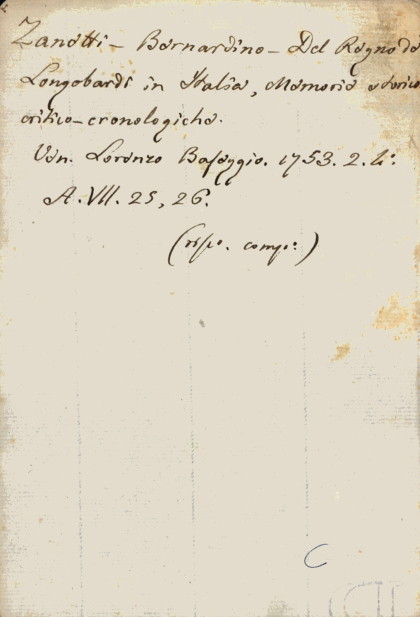 Zanetti - Bernardino - Del Regno de
Longobardi in Italia, Memorie storico
critico-cronologiche.
Ven. Lorenzo Baseggio. 1753. 2. 4°.
A. VII. 25, 26.
C